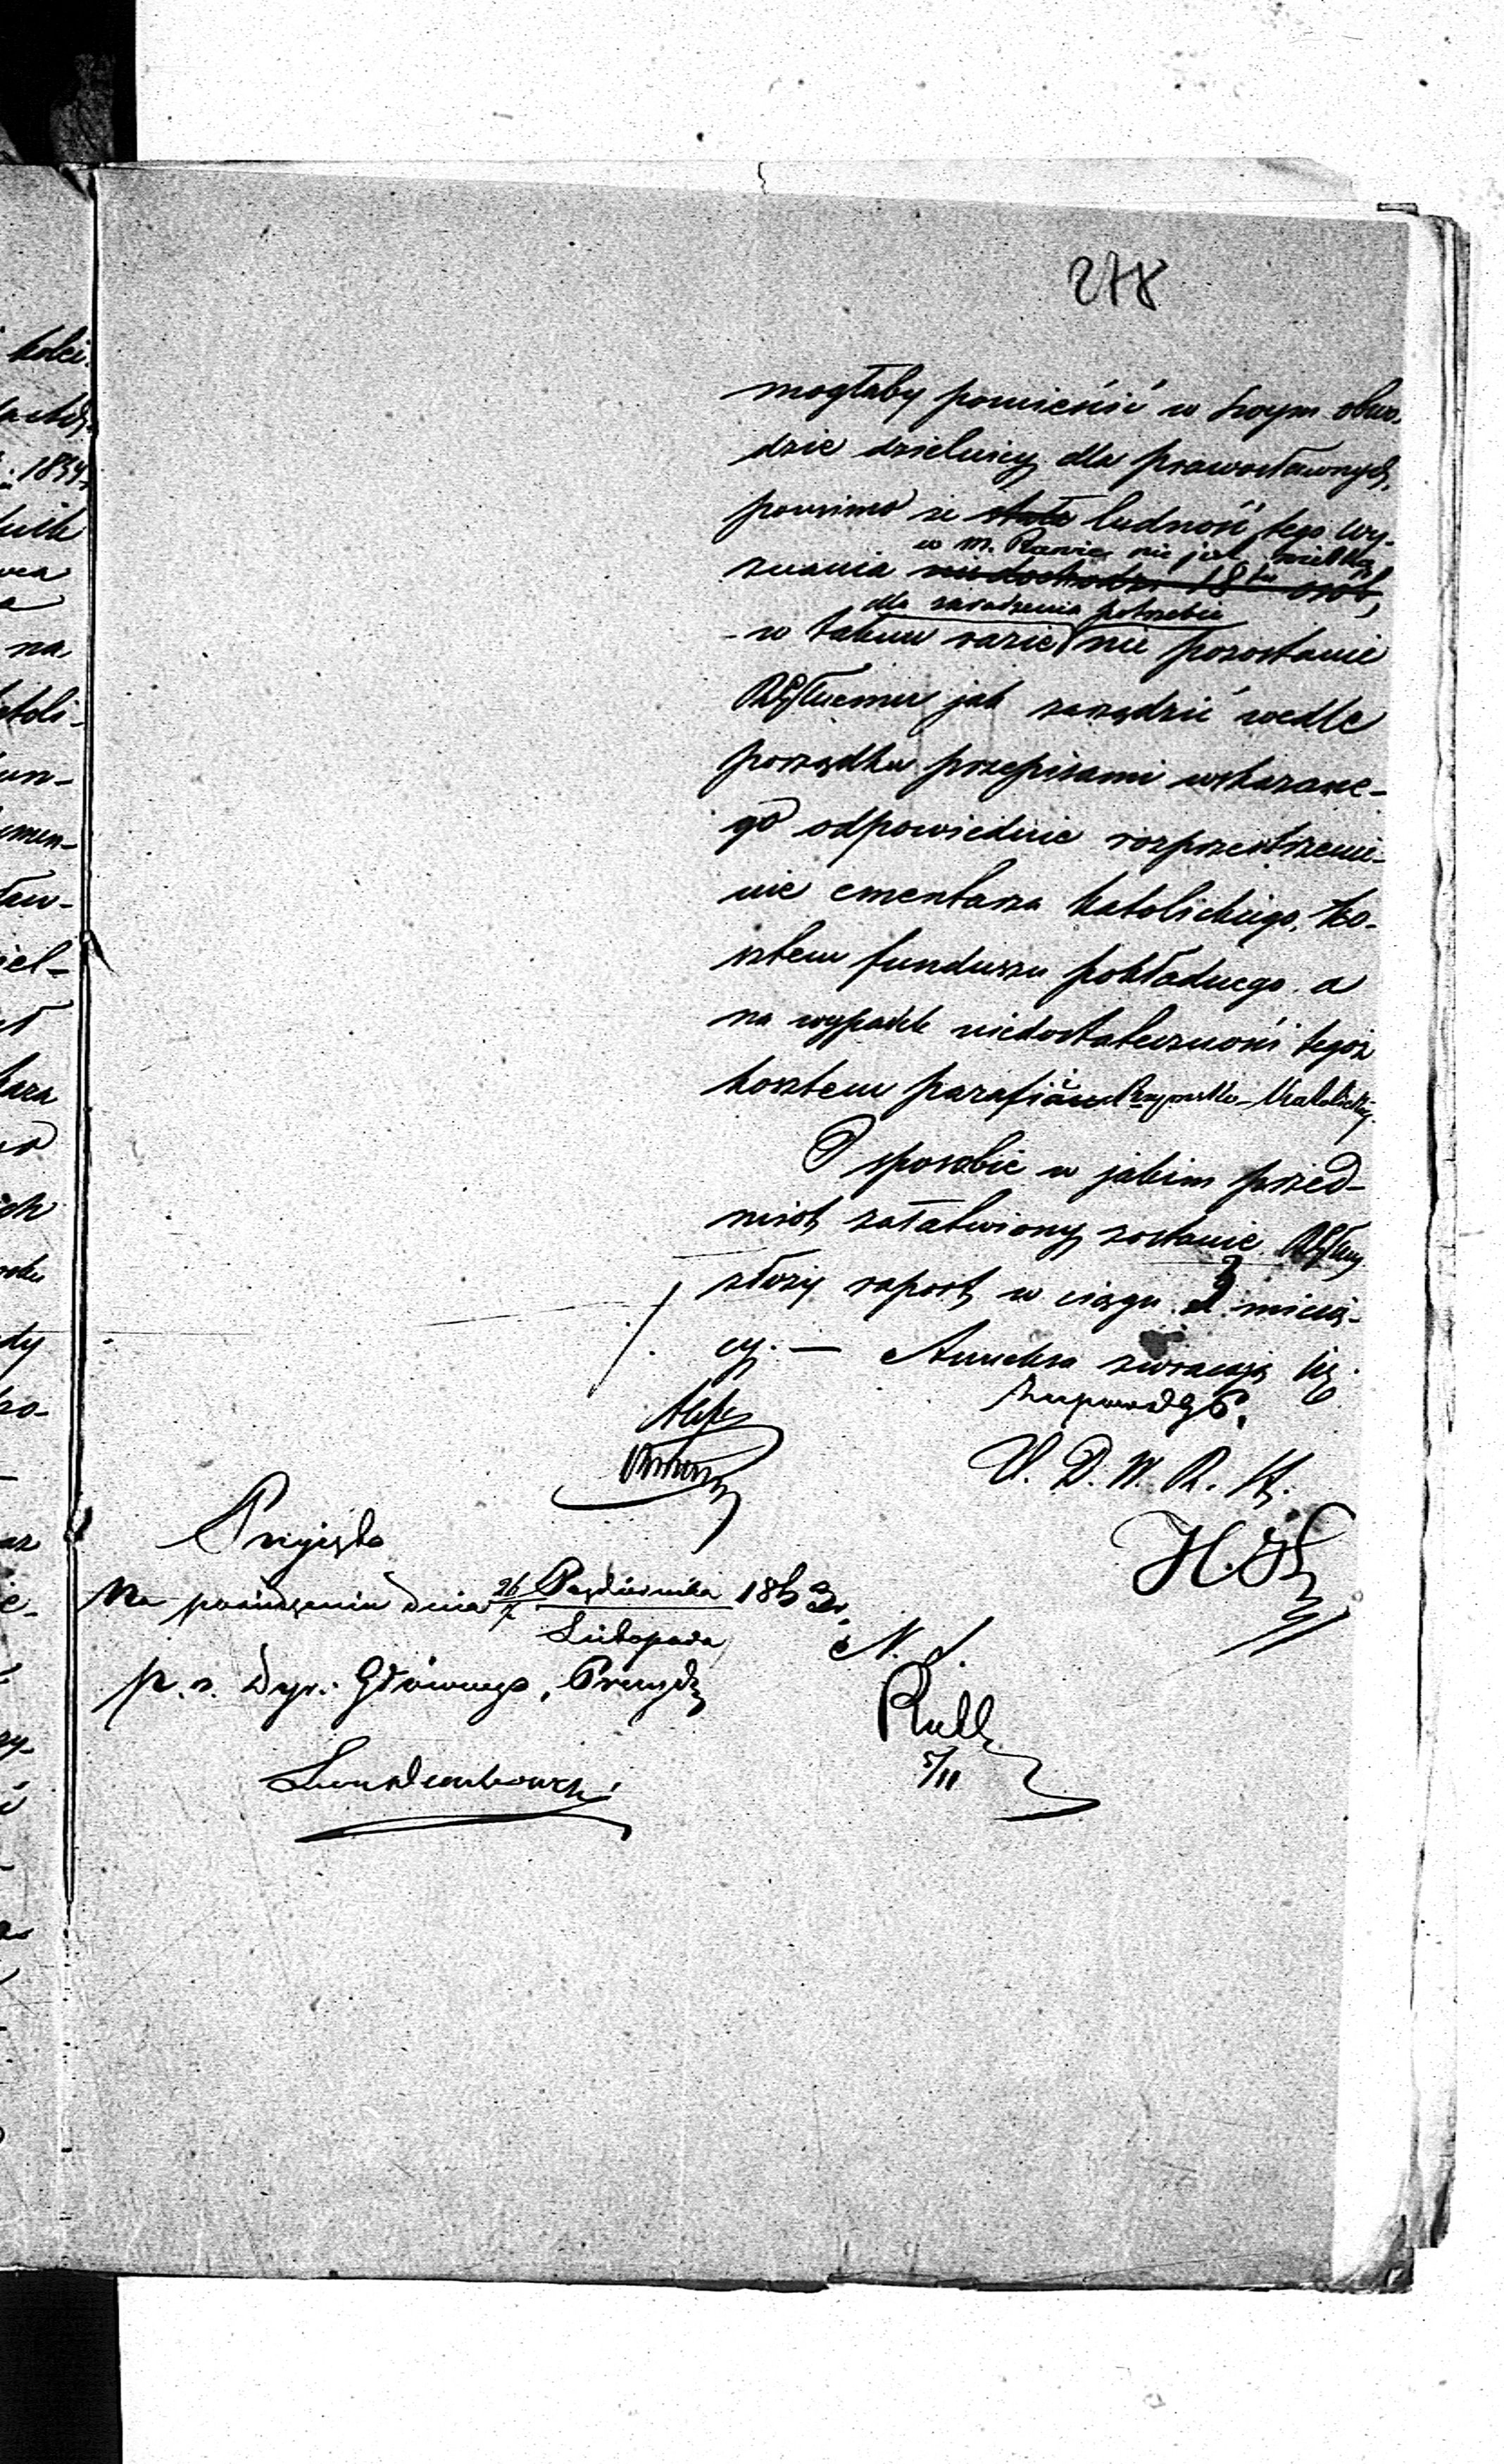 278
mogłaby pomieścić w swym obwo-
dzie dzielnicy dla prawosławnych,
pomimo że stała ludność tego wy-
w m. Rawie nie jest wielka,
znania nie dochodzi 18tu osób,
dla zaradzenia potrzebie
w takim razie nie pozostanie
jak zarządzić wedle
porządku przepisami wskazane-
go odpowiednie rozprzestrzenie-
nie cmentarza katolickiego, ko-
sztem funduszu pokładnego a
na wypadek niedostateczności tegoż
kosztem parafian Rzymsko-Katolickich.
O sposobie w jakim przed-
miot załatwiony zostanie
złoży raport w ciągu 2 miesię-
cy. — Anneksa zwracają się.
Przyjęto
Na posiedzeniu dnia 26/7 Października/Listopada 1863 r.
p. o. Dyr. Głównego, Prezyd.
N. S.
5/11